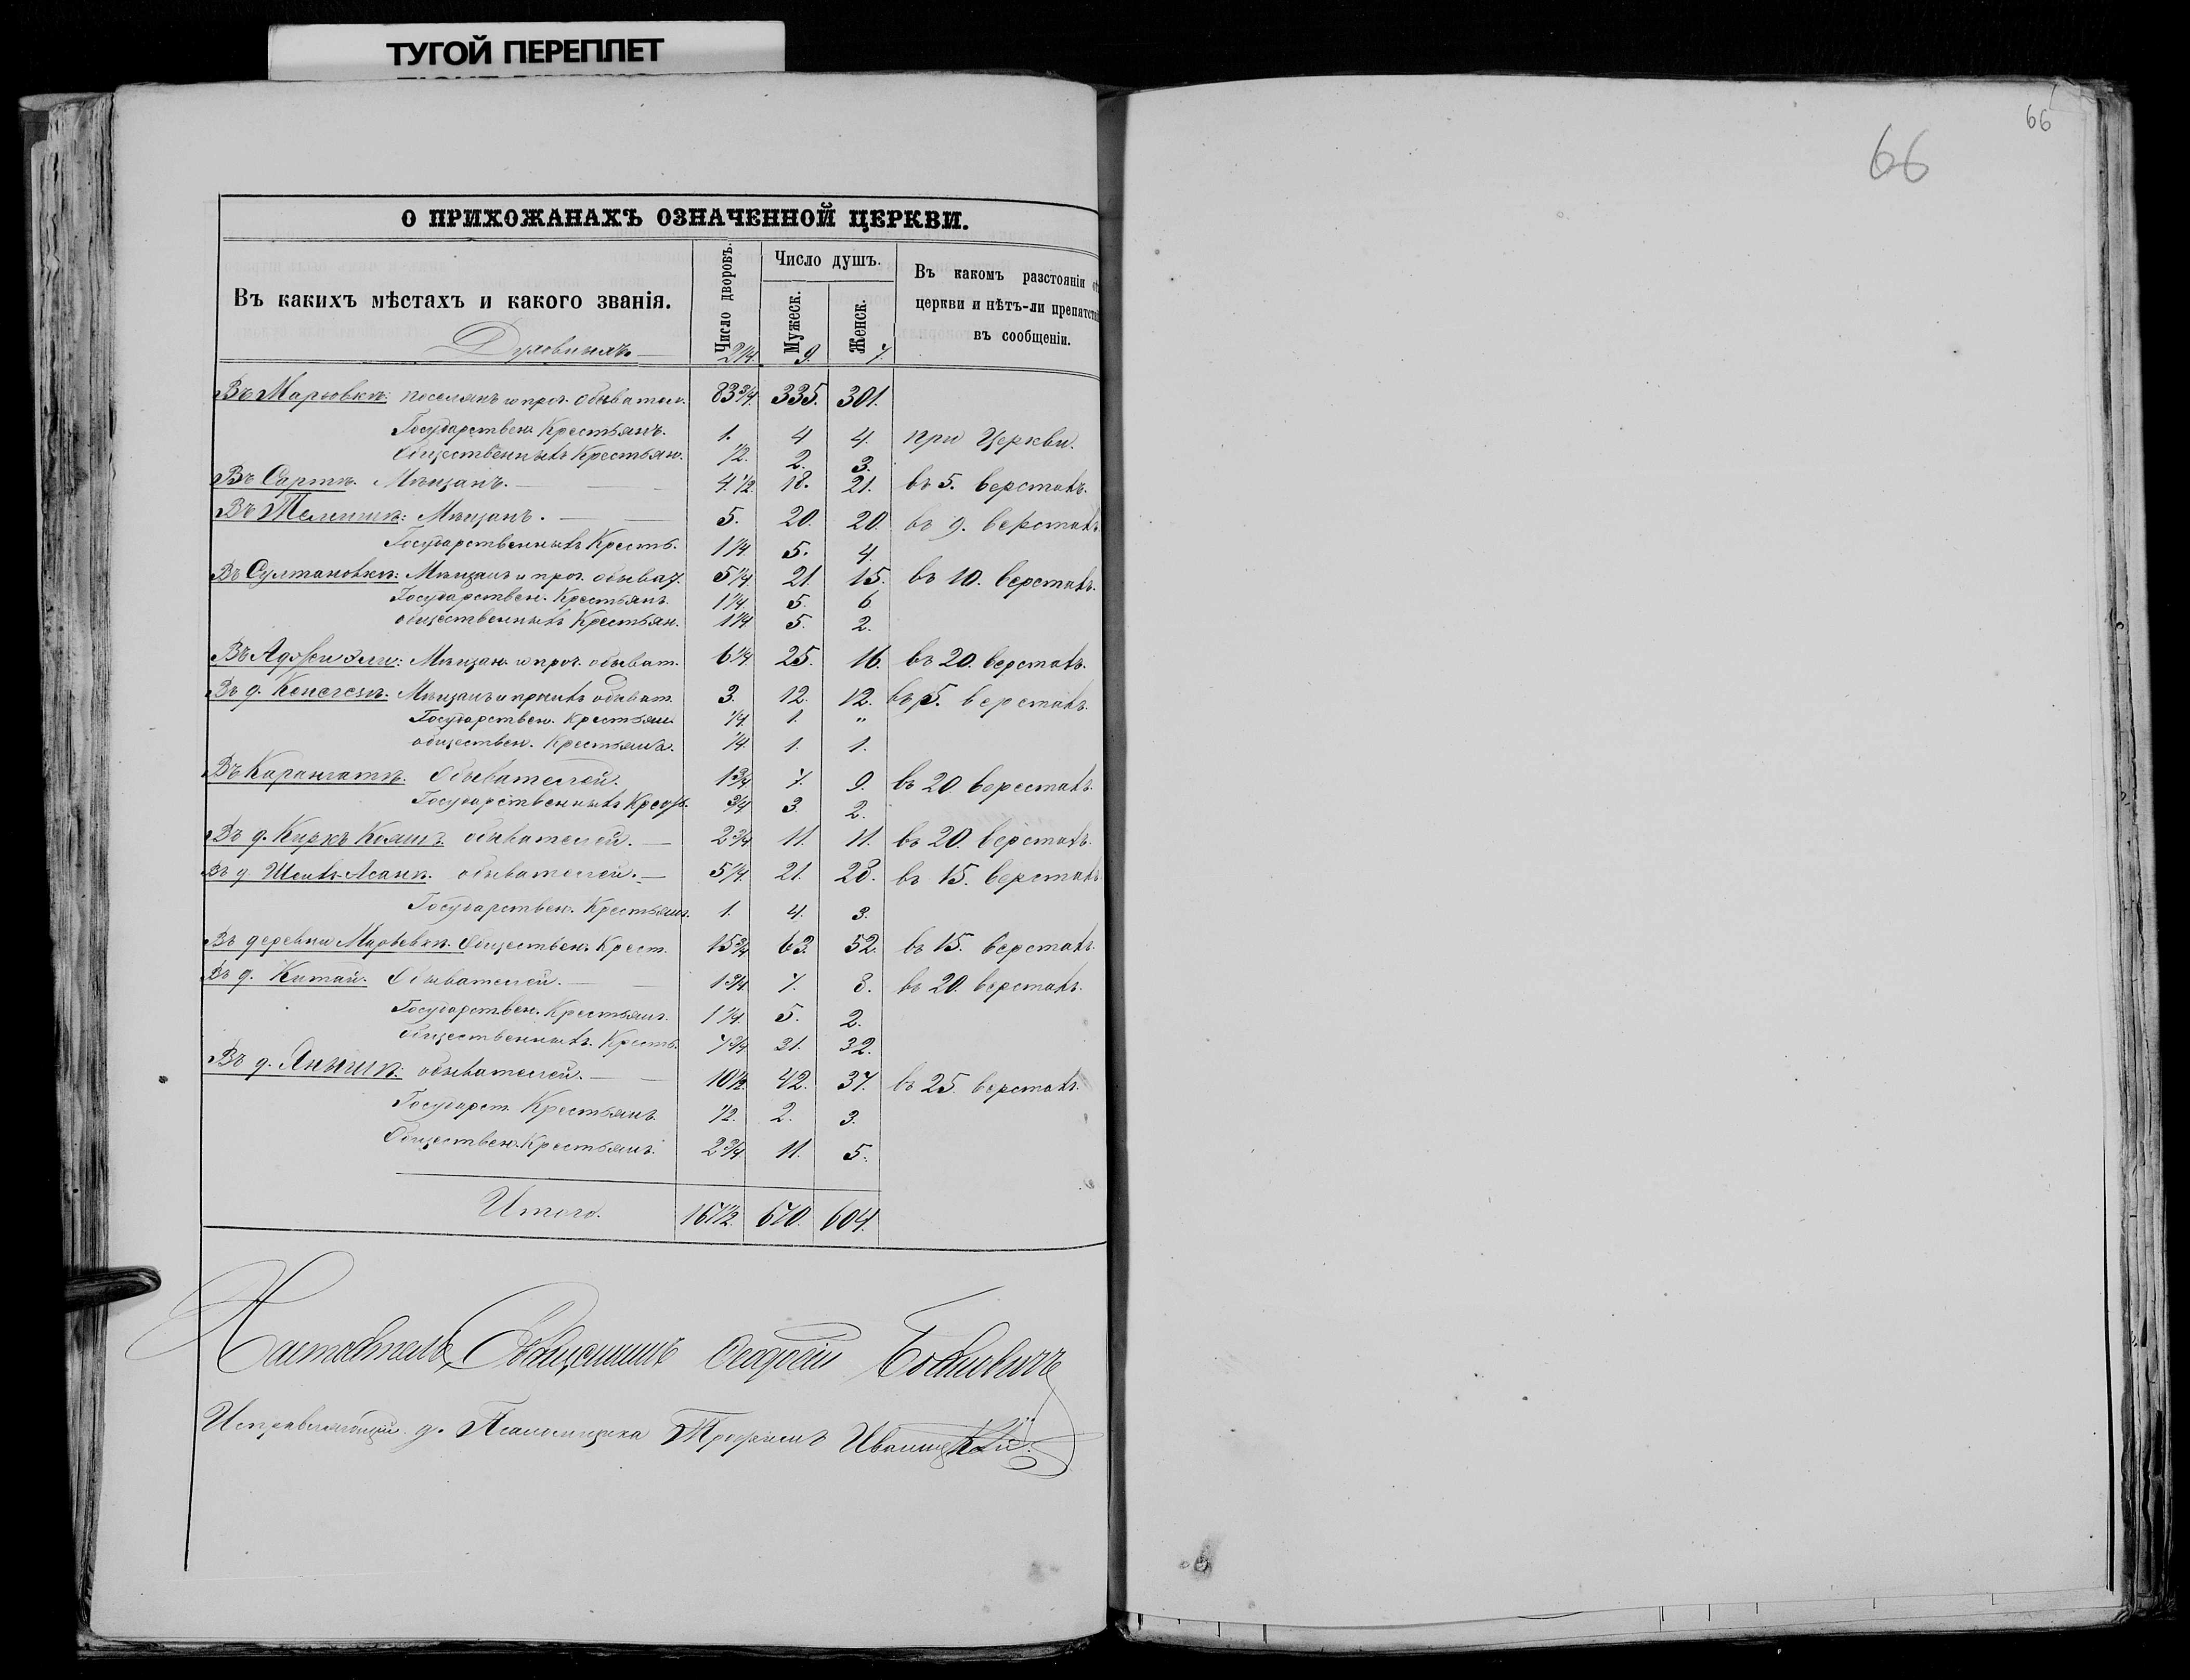 ТУГОЙ ПЕРЕПЛЕТ
66
66
О ПРИХОЖАНАХЪ ОЗНАЧЕННОЙ ЦЕРКВИ.
Въ какихъ мѣстахъ и какого званія. Число дворовъ. Число душъ. Мужеск. Женск. Въ какомъ разстояніи от церкви и нѣтъ-ли препятствій въ сообщеніи.
Духовныхъ 2 1/4. 9. 7.
Въ Марьовкѣ: поселянъ и проч. обывател. 83 3/4. 335. 301.
Государствен. Крестьянъ. 1. 4 4. при Церкви.
Общественныхъ Крестьян. 1/2. 2. 3.
Въ Сартѣ. Мѣщанъ. 4 1/2. 18. 21. въ 5. верстахъ.
Въ Мѣщанъ. 5. 20. 20. въ 9. верстахъ
Государственныхъ Кресть. 1 1/4. 5. 4
Въ Султановкѣ: Мѣщанъ и проч. обыват. 5 1/4 21. 15. въ 10. верстахъ.
Государствен. Крестьянъ. 1 1/4. 5. 6
общественныхъ Крестьян. 1 1/4 5. 2.
Въ Мѣщан. и проч. обыват. 6 1/4 25. 16. въ 20. верстахъ.
Въ д. Конегезъ. Мѣщанъ и прочихъ обыват. 3. 12. 12. въ 5. верстахъ.
Государствен. Крестьян. 1/4. 1. „
обществен. Крестьянъ. 1/4. 1. 1.
Въ Карангатѣ. Обывателей. 1 3/4 7. 9. въ 20 верстахъ.
Государственныхъ Крест. 3/4 3. 2.
Въ д. Киркъ Кояшъ. обывателей. 2 3/4 11. 11. въ 20. верстахъ.
Въ д Шеихъ-Асанѣ. обывателей. 5 1/4. 21. 28. въ 15. верстахъ
Государствен. Крестьянъ. 1. 4. 3.
Въ деревни Марьевкѣ. Обществен. Крест. 15 3/4 63. 52. въ 15. верстахъ.
Въ д. Китай. Обывателей. 1 3/4 7. 8. въ 20. верстахъ.
Государствен. Крестьянъ. 1 1/4. 5. 2.
общественныхъ. Кресть. 7 3/4 31. 32.
Въ д. Янышъ: обывателей. 10 1/2. 42. 37. въ 25. верстахъ.
Государст. Крестьянъ. 1/2. 2. 3.
Обществен. Крестьянъ. 2 3/4. 11. 5.
Итого. 167 1/2. 670. 604.
Настоятель, Священникъ Ѳеодосій
Исправляющій д. Псаломщика Трофимъ Иваницкій.